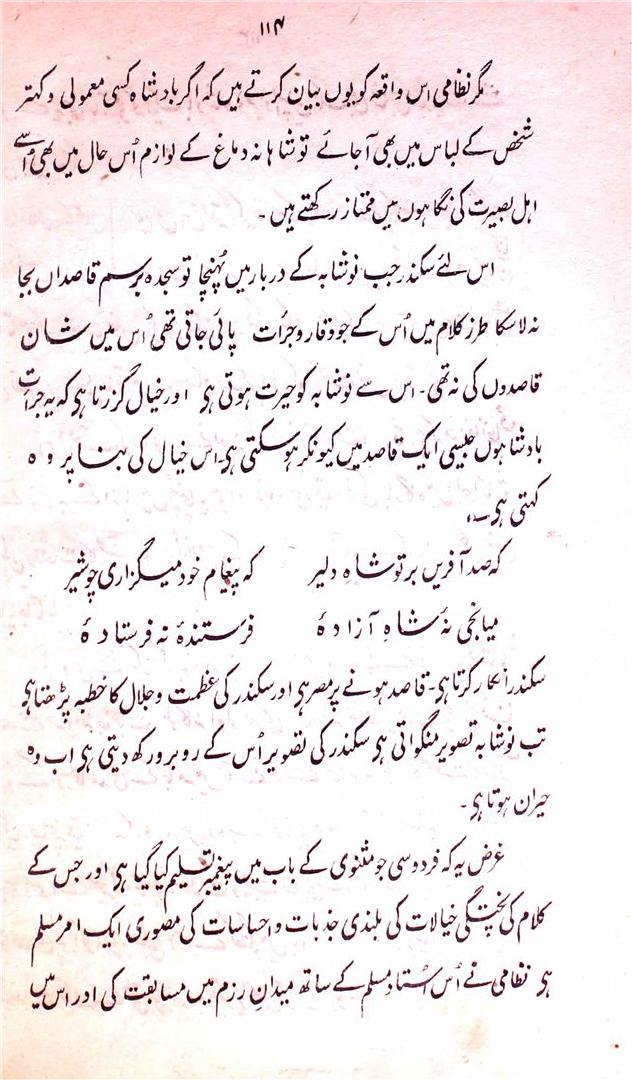 ۱۱۴
مگر نظامی اس واقعہ کو یوں بیان کرتے ہیں کہ اگر بادشاہ کسی معمولی و کہتر
شخص کے لباس میں بھی آجائے تو شاہانہ دماغ کے لوازم اُس حال میں بھی اُسے
اہل بصیرت کی نگاہوں میں ممتاز رکھتے ہیں۔
اس لئے سکندر جب نوشابہ کے دربار میں پُہنچا تو سجدہ برسم قاصداں بجا
نہ لا سکا طرز کلام میں اُس کے جو وقار و جرأت پائی جاتی تھی اُس میں شان
قاصدوں کی نہ تھی۔ اس سے نوشابہ کو حیرت ہوتی ہی اور خیال گزرتا ہی کہ یہ جرأت
بادشاہوں جیسی ایک قاصد میں کیونکر ہوسکتی ہی۔ اس خیال کی بنا پر وہ
کہتی ہی۔
کہ صد آفریں بر تو شاہِ دلیر کہ پیغام خود میگزاری چو شیر
میانجی نۂ شاہِ آزادۂ فرستندۂ نہ فرستادۂ
سکندر انکار کرتا ہی۔ قاصد ہونے پر مصر ہی اور سکندر کی عظمت و جلال کا خطبہ پڑھتا ہی
تب نوشابہ تصویر منگواتی ہی سکندر کی تصویر اُس کے روبرو رکھ دیتی ہی اب وہ
حیران ہوتا ہی۔
غرض یہ کہ فردوسی جو مثنوی کے باب میں پیغمبر تسلیم کیا گیا ہی اور جس کے
کلام کی پختگی خیالات کی بلندی جذبات و احساسات کی مصوری ایک امر مسلم
ہی نظامی نے اُس اُستاد مسلم کے ساتھ میدانِ رزم میں مسابقت کی اور اس میں